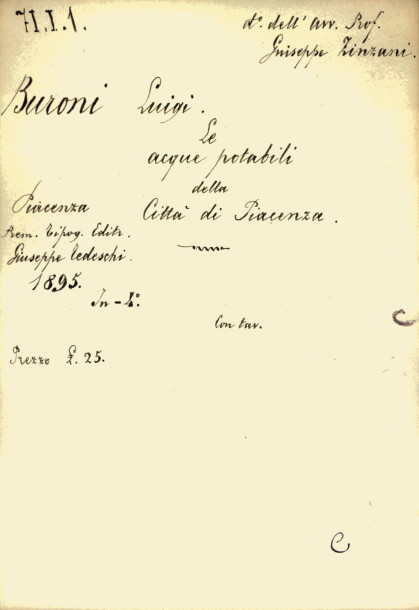 71.I.1.
d.° dell' Avv. Prof.
Giuseppe Zinzani.
Buroni Luigi.
Le
acque potabili
della
Città di Piacenza.
Piacenza
Prem. Tipog. Editr.
Giuseppe Tedeschi.
1895.
In-4°.
Con tav.
Prezzo £. 25.
C